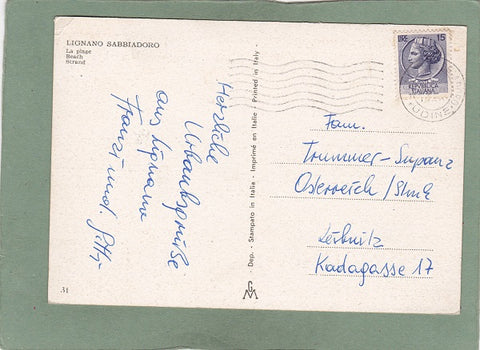 LIGNANO SABBIADORO
La plage
Beach
Strand
Herzliche
Urlaubsgrüße
aus Lignano
Franz und
Dep. - Stampato in Italia - Imprimé en Italie - Printed in Italy -
LIRE 15
REPVBBLICA
ITALIANA
UDINE
Fam.
Trummer-Supanz
Österreich / Stmk
Leibnitz
Kadagasse 17
31